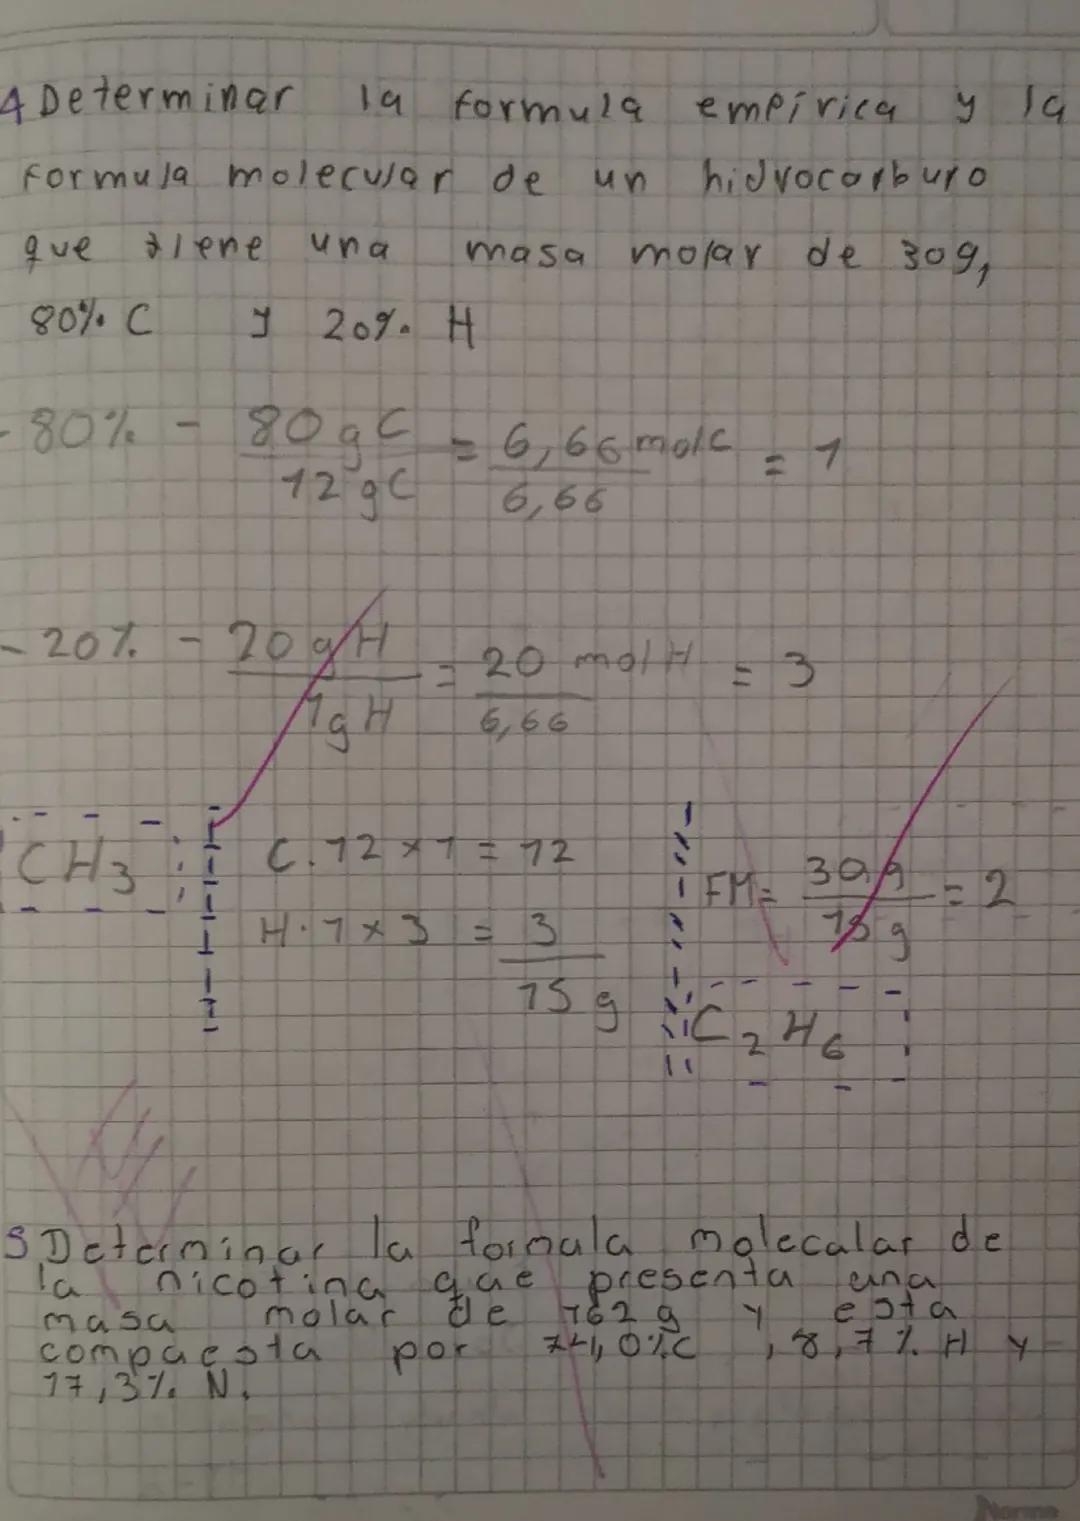 4 Determinar la formula empírica y la
formula molecular de un hidrocarburo
que tiene una masa molar de 30g,
80% C y 20% H
- 80% - 80 gC / 12 gC = 6,66 molC / 6,66 = 1
- 20% - 20 gH / 1gH = 20 molH / 6,66 = 3
CH3
C. 12 x 1 = 12
H. 1 x 3 = 3
15 g
FM= 30g / 15g = 2
C2H6
5 Determinar la formula molecular de
la nicotina que presenta una
masa molar de 162 g y esta
compuesta por 74,0%C , 8,7% H y
17,3% N.
Norma